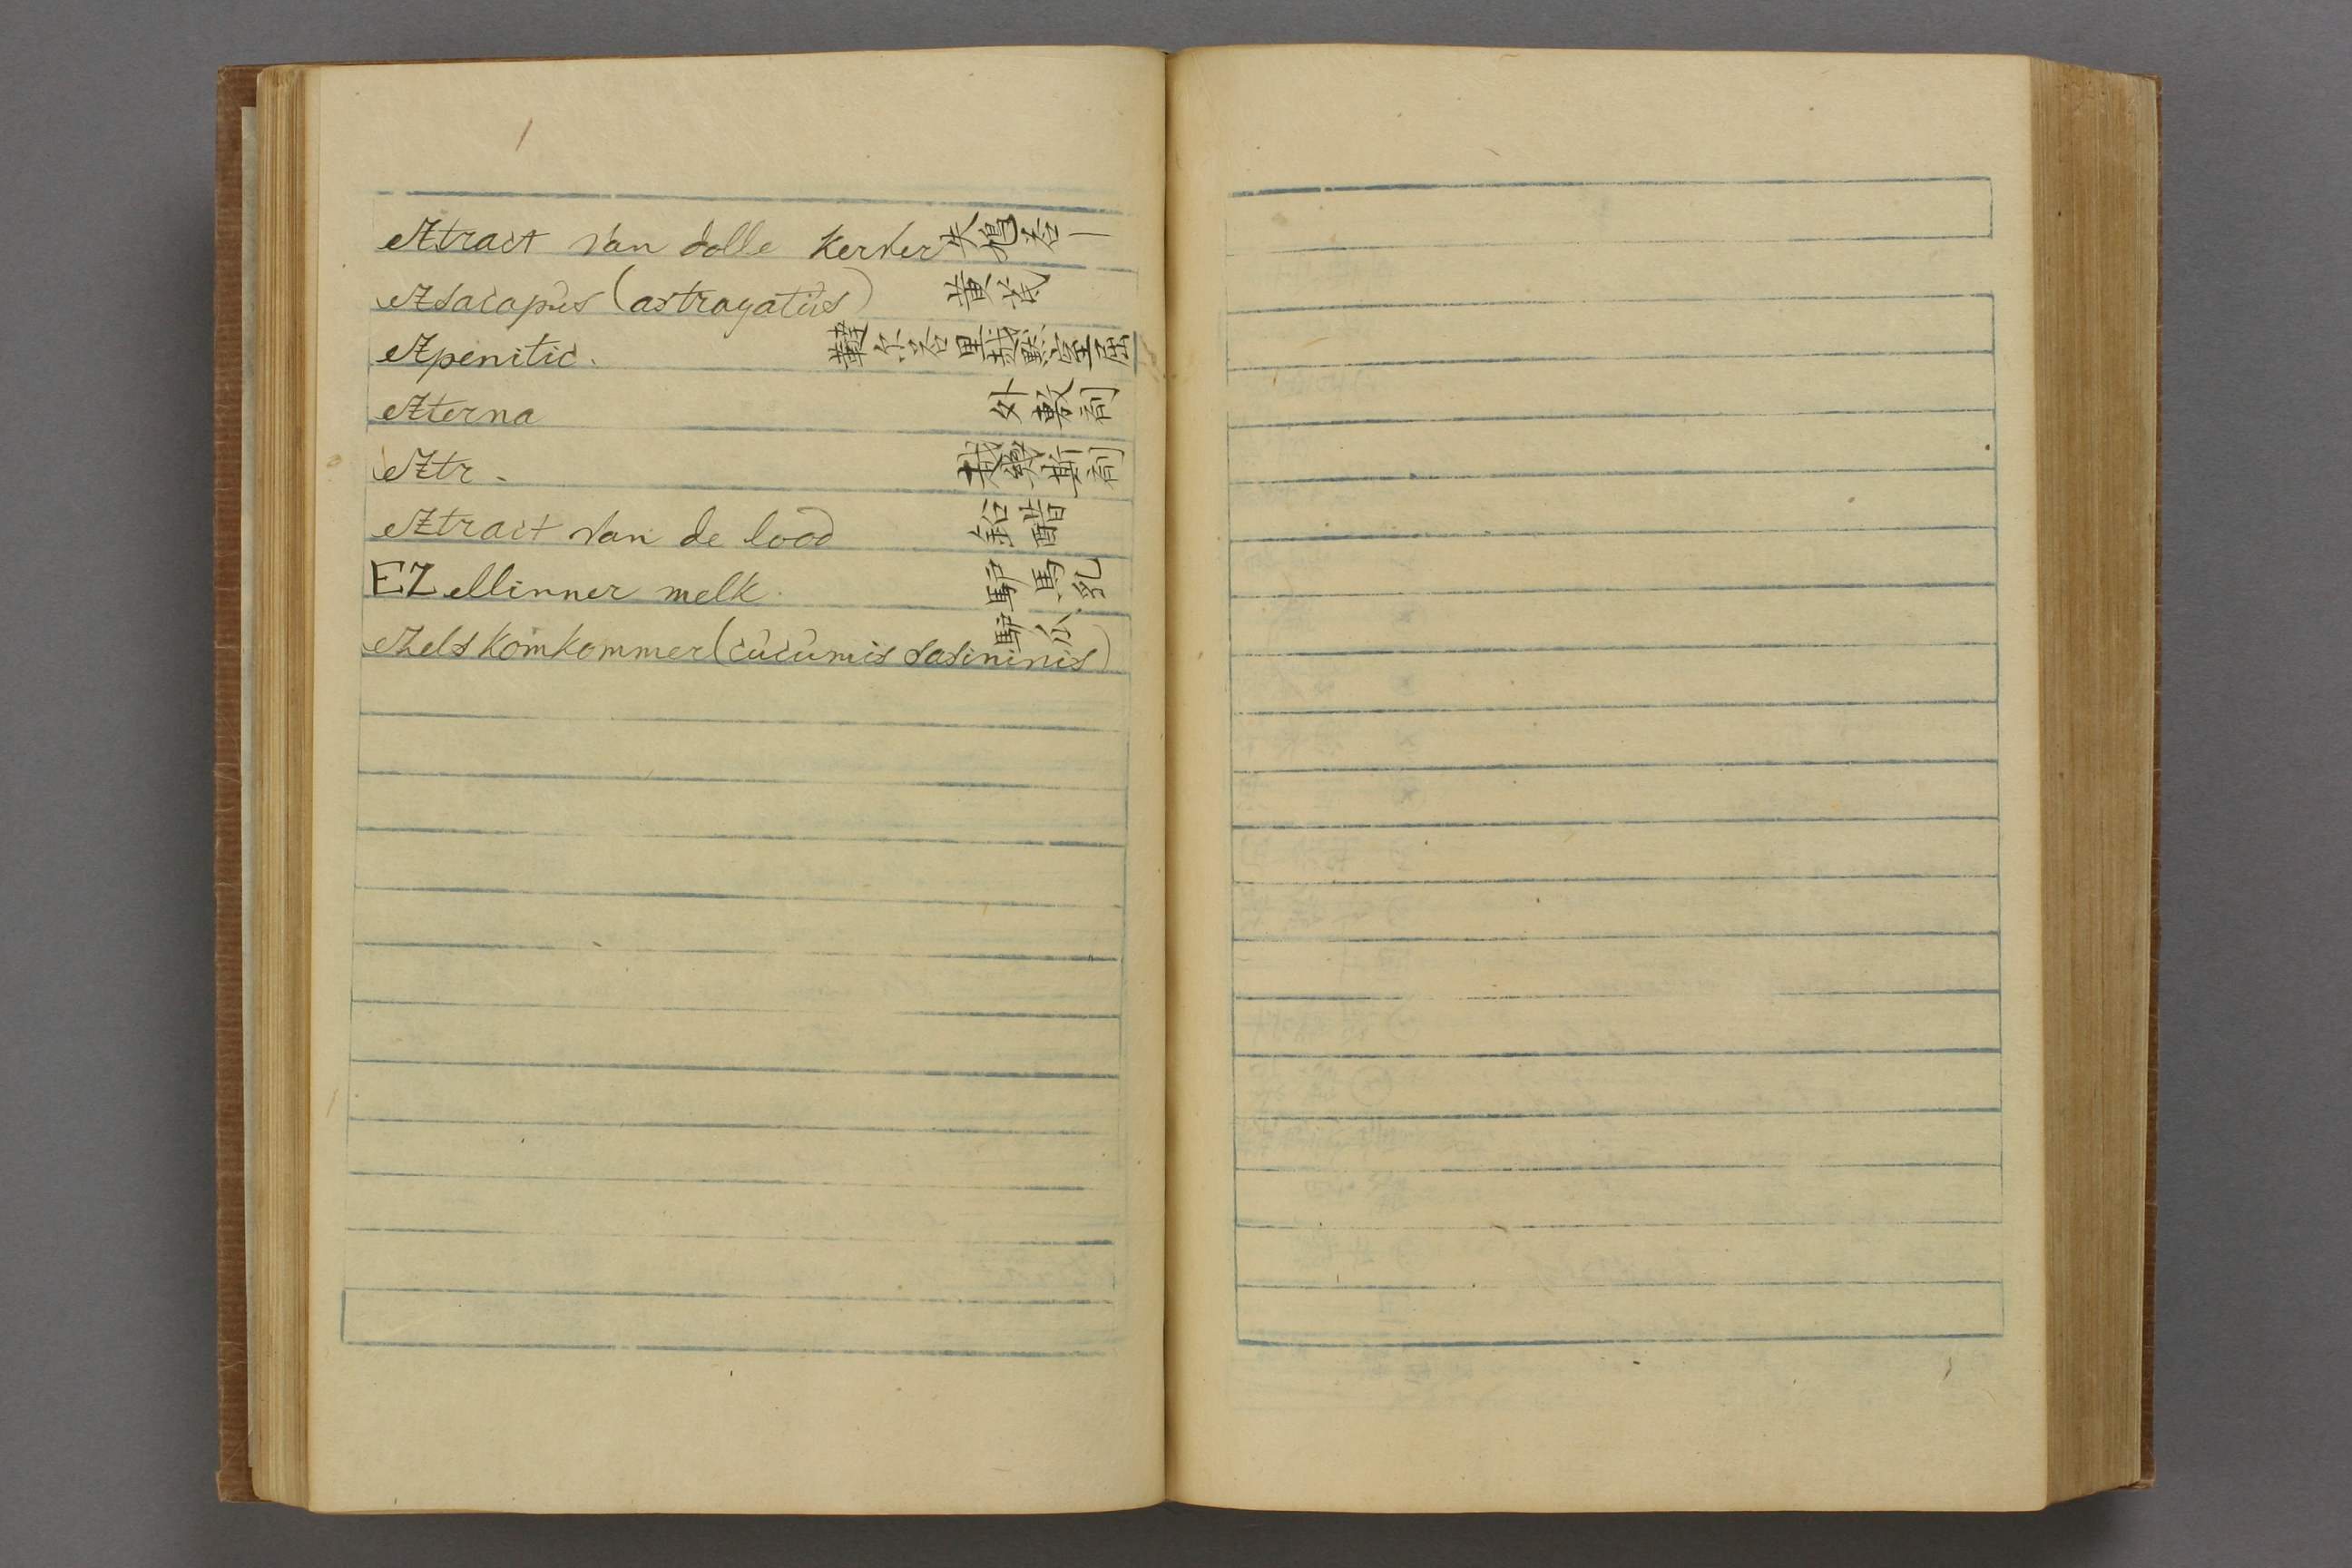 eXtract van dolle kerver 失鳩荅一
eXsacapus (astragatus) 黄芪
eXpenitic. 韃尓荅里越黙窒屈
eXterna 外敷剤
eXtr. 越幾斯剤
eXtract van de lood 鉛醋
EZellinner melk. 驴馬乳
eZels komkommer (cucumis sasininis) 驴瓜